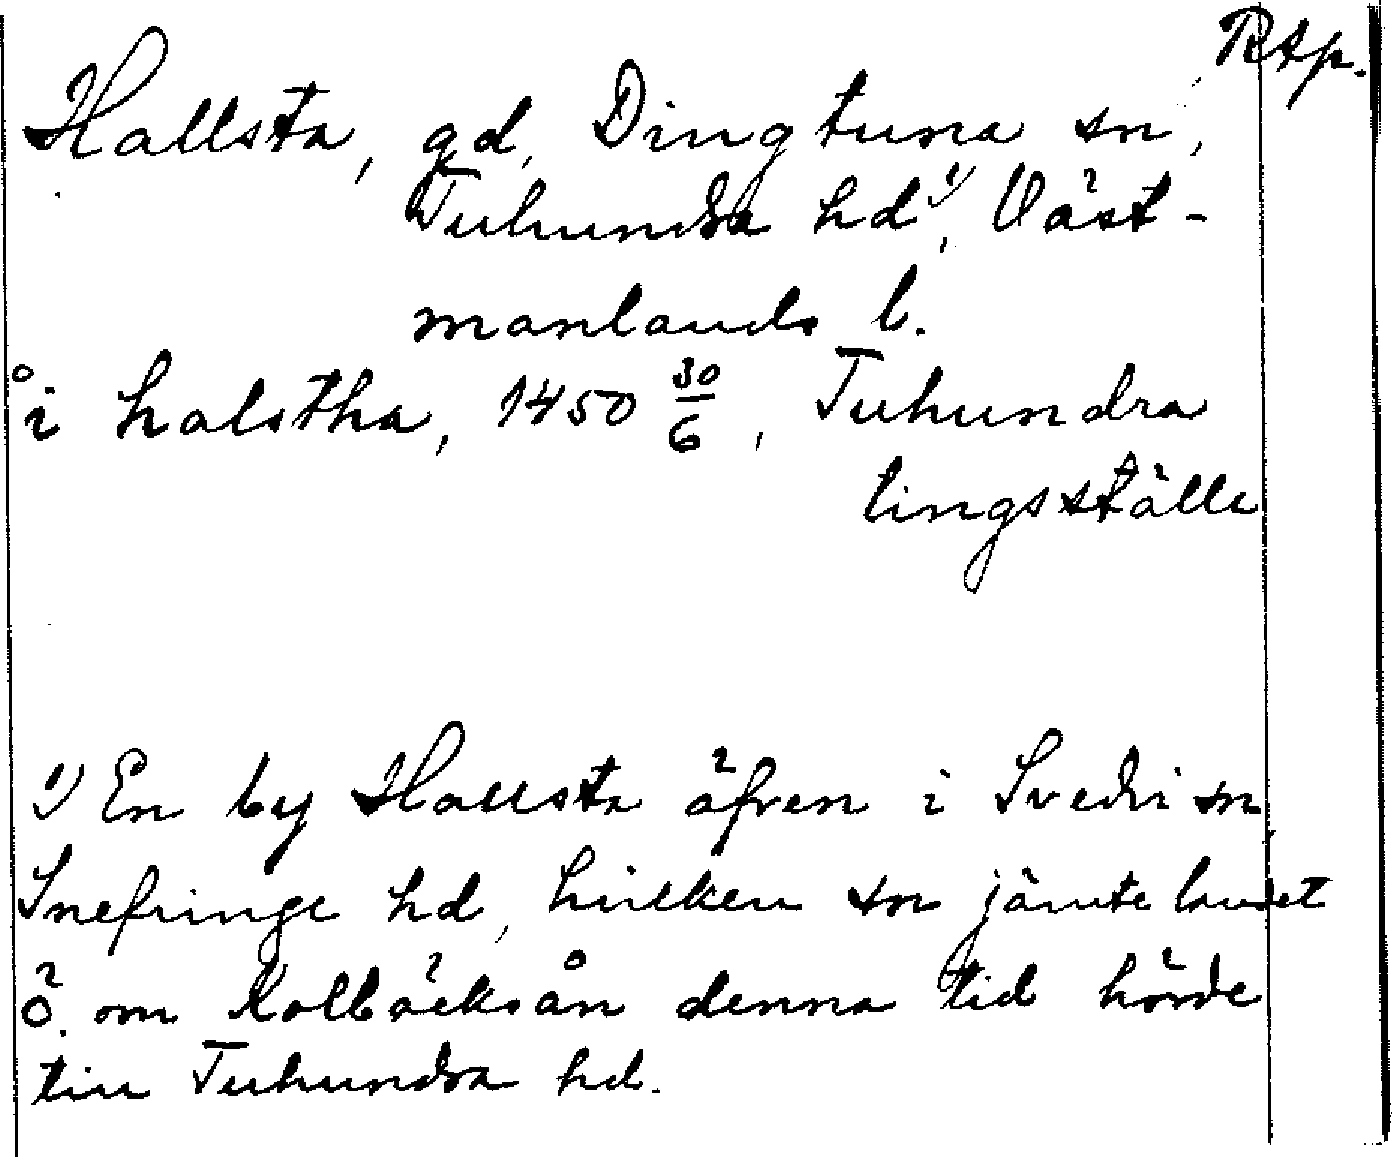 Rtp.
Hallsta, gd, Dingtuna sn,
Tuhundra hd¹⁾, Väst-
manlands l.
å
i halstha, 1450 30/6, Tuhundra
tingsställe
¹⁾ En by Hallsta äfven i Svedvi sn,
Snefringe hd, hvilken sn jämte landet
ö. om Kolbäcksån denna tid hörde
till Tuhundra hd.